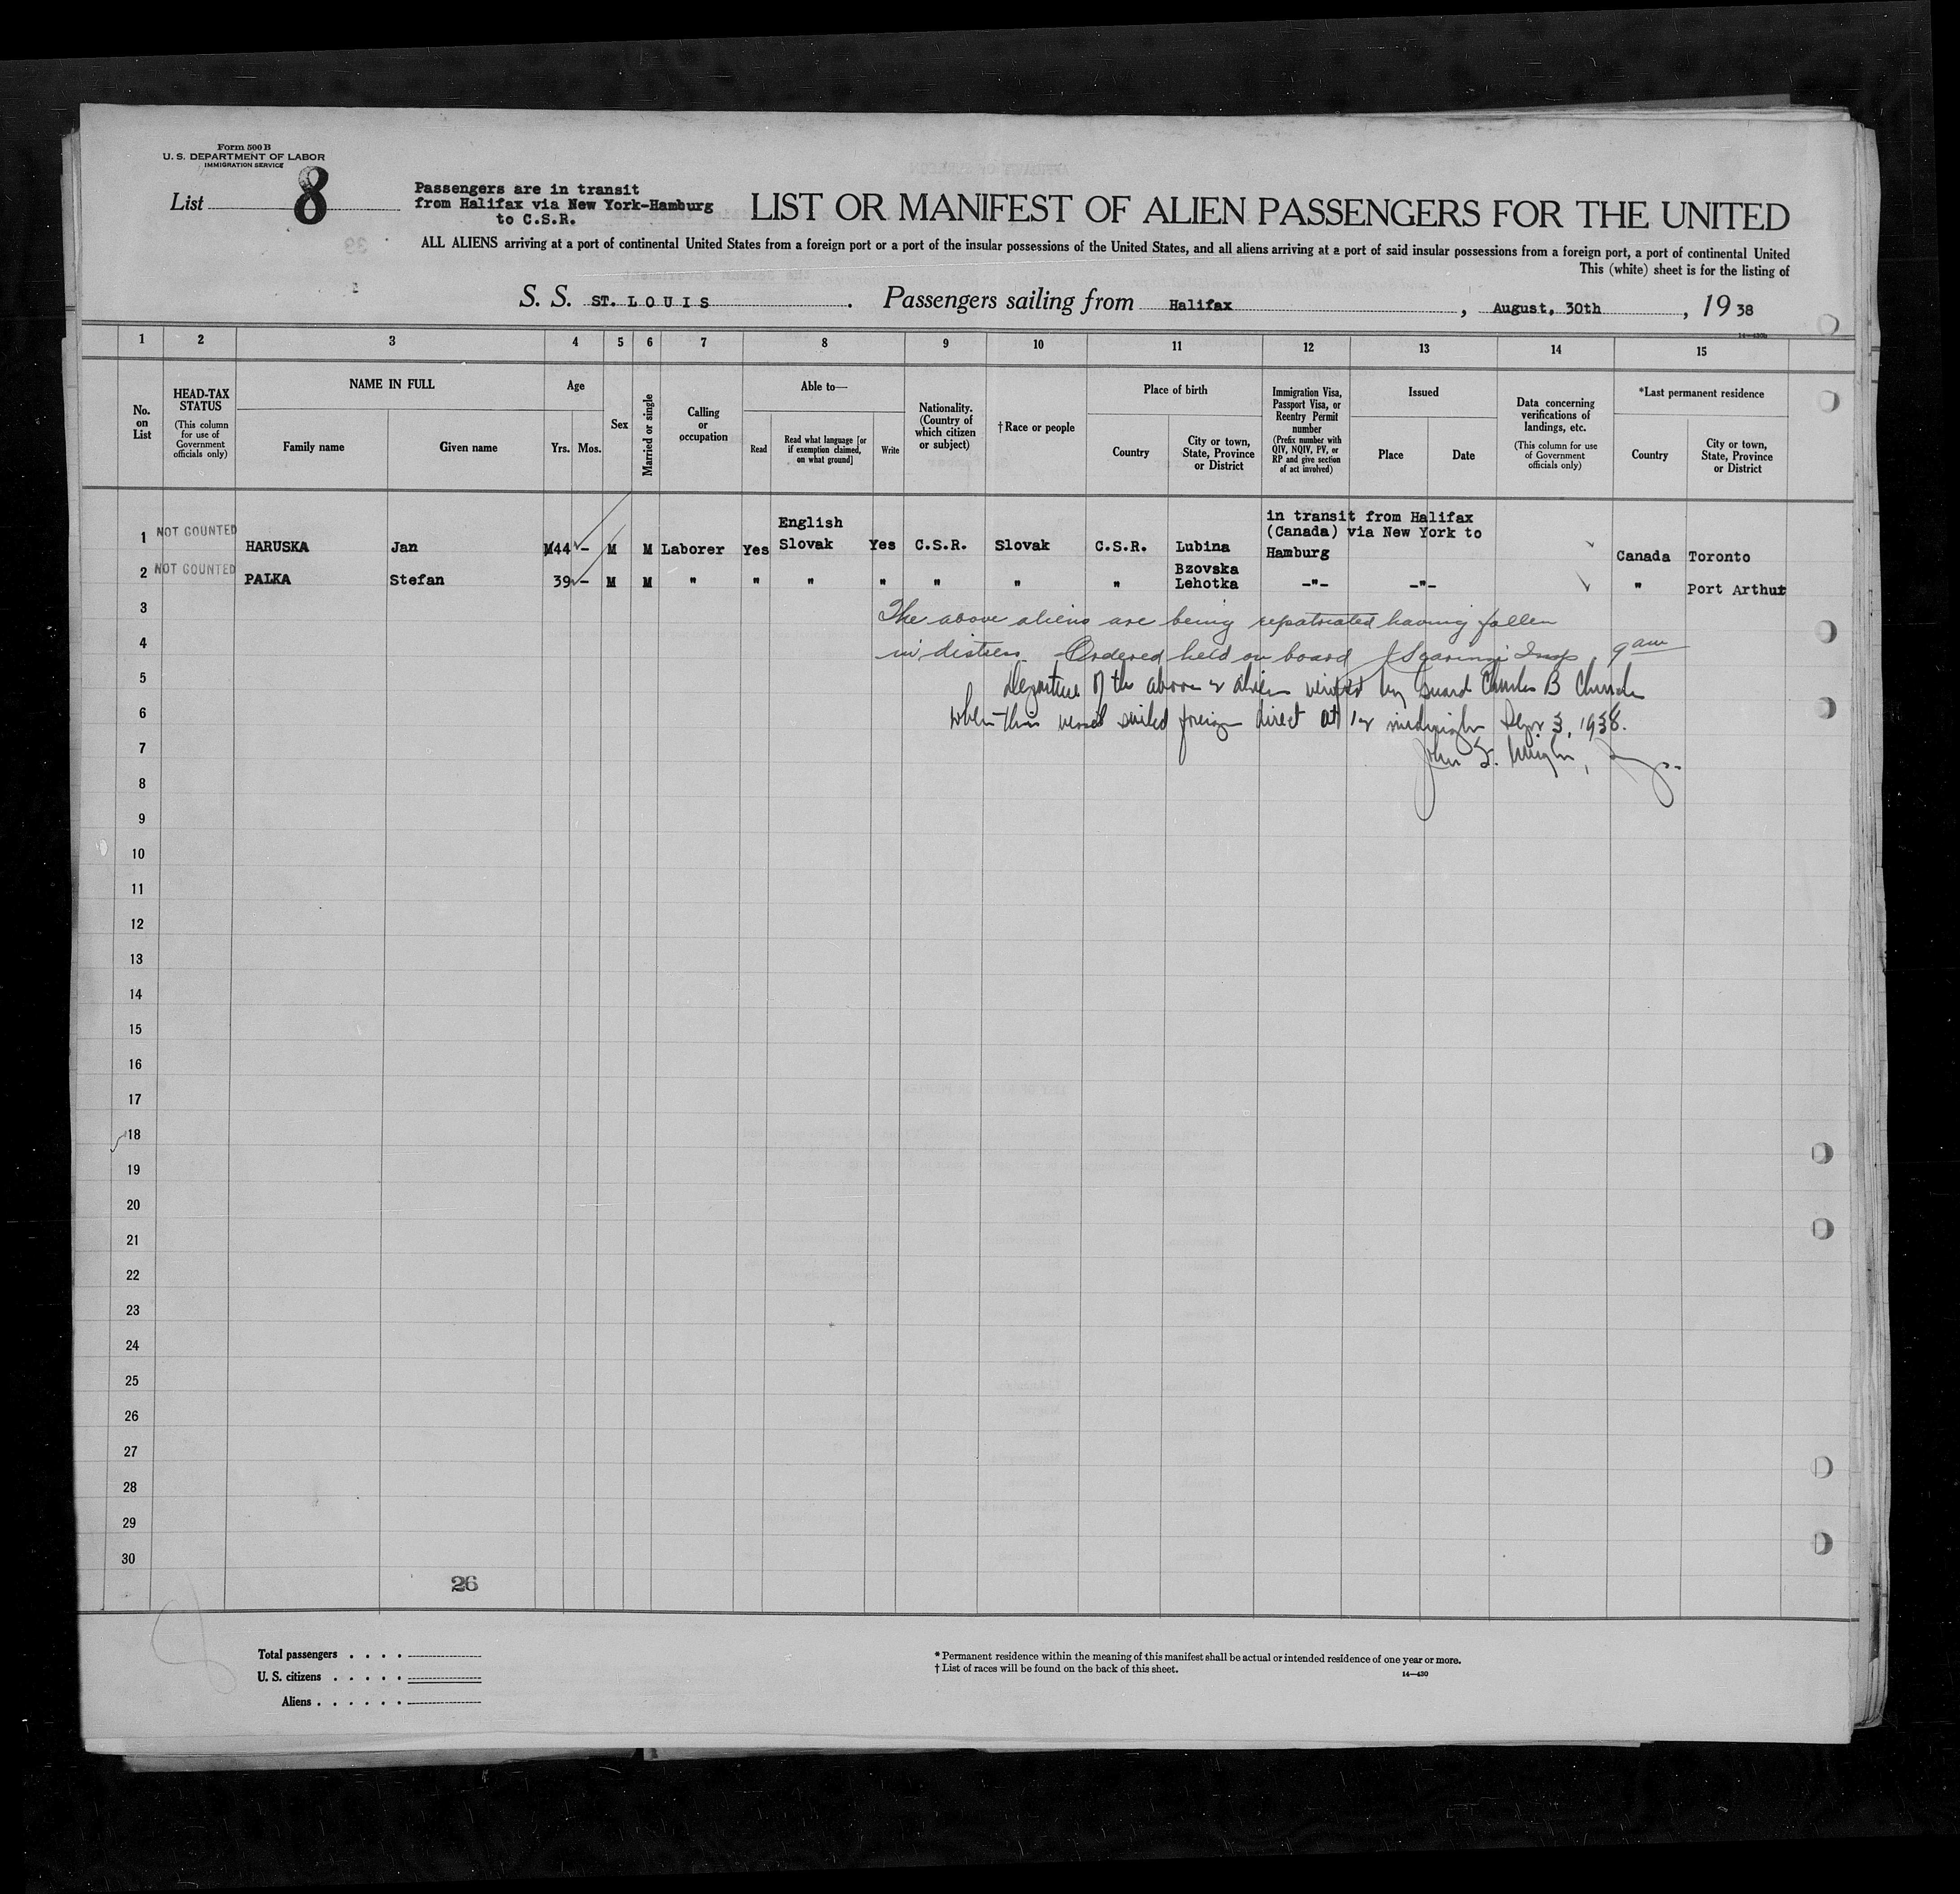 Form 500 B
U. S. DEPARTMENT OF LABOR
IMMIGRATION SERVICE
List 8
Passengers are in transit
from Halifax via New York-Hamburg
to C.S.R.
LIST OR MANIFEST OF ALIEN PASSENGERS FOR THE UNITED
ALL ALIENS arriving at a port of continental United States from a foreign port or a port of the insular possessions of the United States, and all aliens arriving at a port of said insular possessions from a foreign port, a port of continental United
This (white) sheet is for the listing of
S. S. ST. LOUIS . Passengers sailing from Halifax , August, 30th , 19 38
1 2 3 4 5 6 7 8 9 10 11 12 13 14 15
No. on List
HEAD-TAX STATUS
(This column for use of Government officials only)
NAME IN FULL
Family name
Given name
Age
Yrs. Mos.
Sex
Married or single
Calling or occupation
Able to—
Read
Read what language [or if exemption claimed, on what ground]
Write
Nationality. (Country of which citizen or subject)
†Race or people
Place of birth
Country
City or town, State, Province or District
Immigration Visa, Passport Visa, or Reentry Permit number
(Prefix number with QIV, NQIV, PV, or RP and give section of act involved)
Issued
Place
Date
Data concerning verifications of landings, etc.
(This column for use of Government officials only)
*Last permanent residence
Country
City or town, State, Province or District
1 NOT COUNTED HARUSKA Jan 44 - M M Laborer Yes English Slovak Yes C.S.R. Slovak C.S.R. Lubina in transit from Halifax (Canada) via New York to Hamburg Canada Toronto
2 NOT COUNTED PALKA Stefan 39 - M M " " " " " " " Bzovska Lehotka -"- -"- " Port Arthur
3
The above aliens are being repatriated having fallen
4
in distress. Ordered held on board Insp. 9 am
5
Departure of the above 2 aliens verified by guard Charles B Church
6
when this vessel sailed foreign direct at 12 midnight Sept 3, 1938.
7
John
8
9
10
11
12
13
14
15
16
17
18
19
20
21
22
23
24
25
26
27
28
29
30
26
Total passengers . . . .
U. S. citizens . . . . .
Aliens . . . . . .
* Permanent residence within the meaning of this manifest shall be actual or intended residence of one year or more.
† List of races will be found on the back of this sheet.
14—430